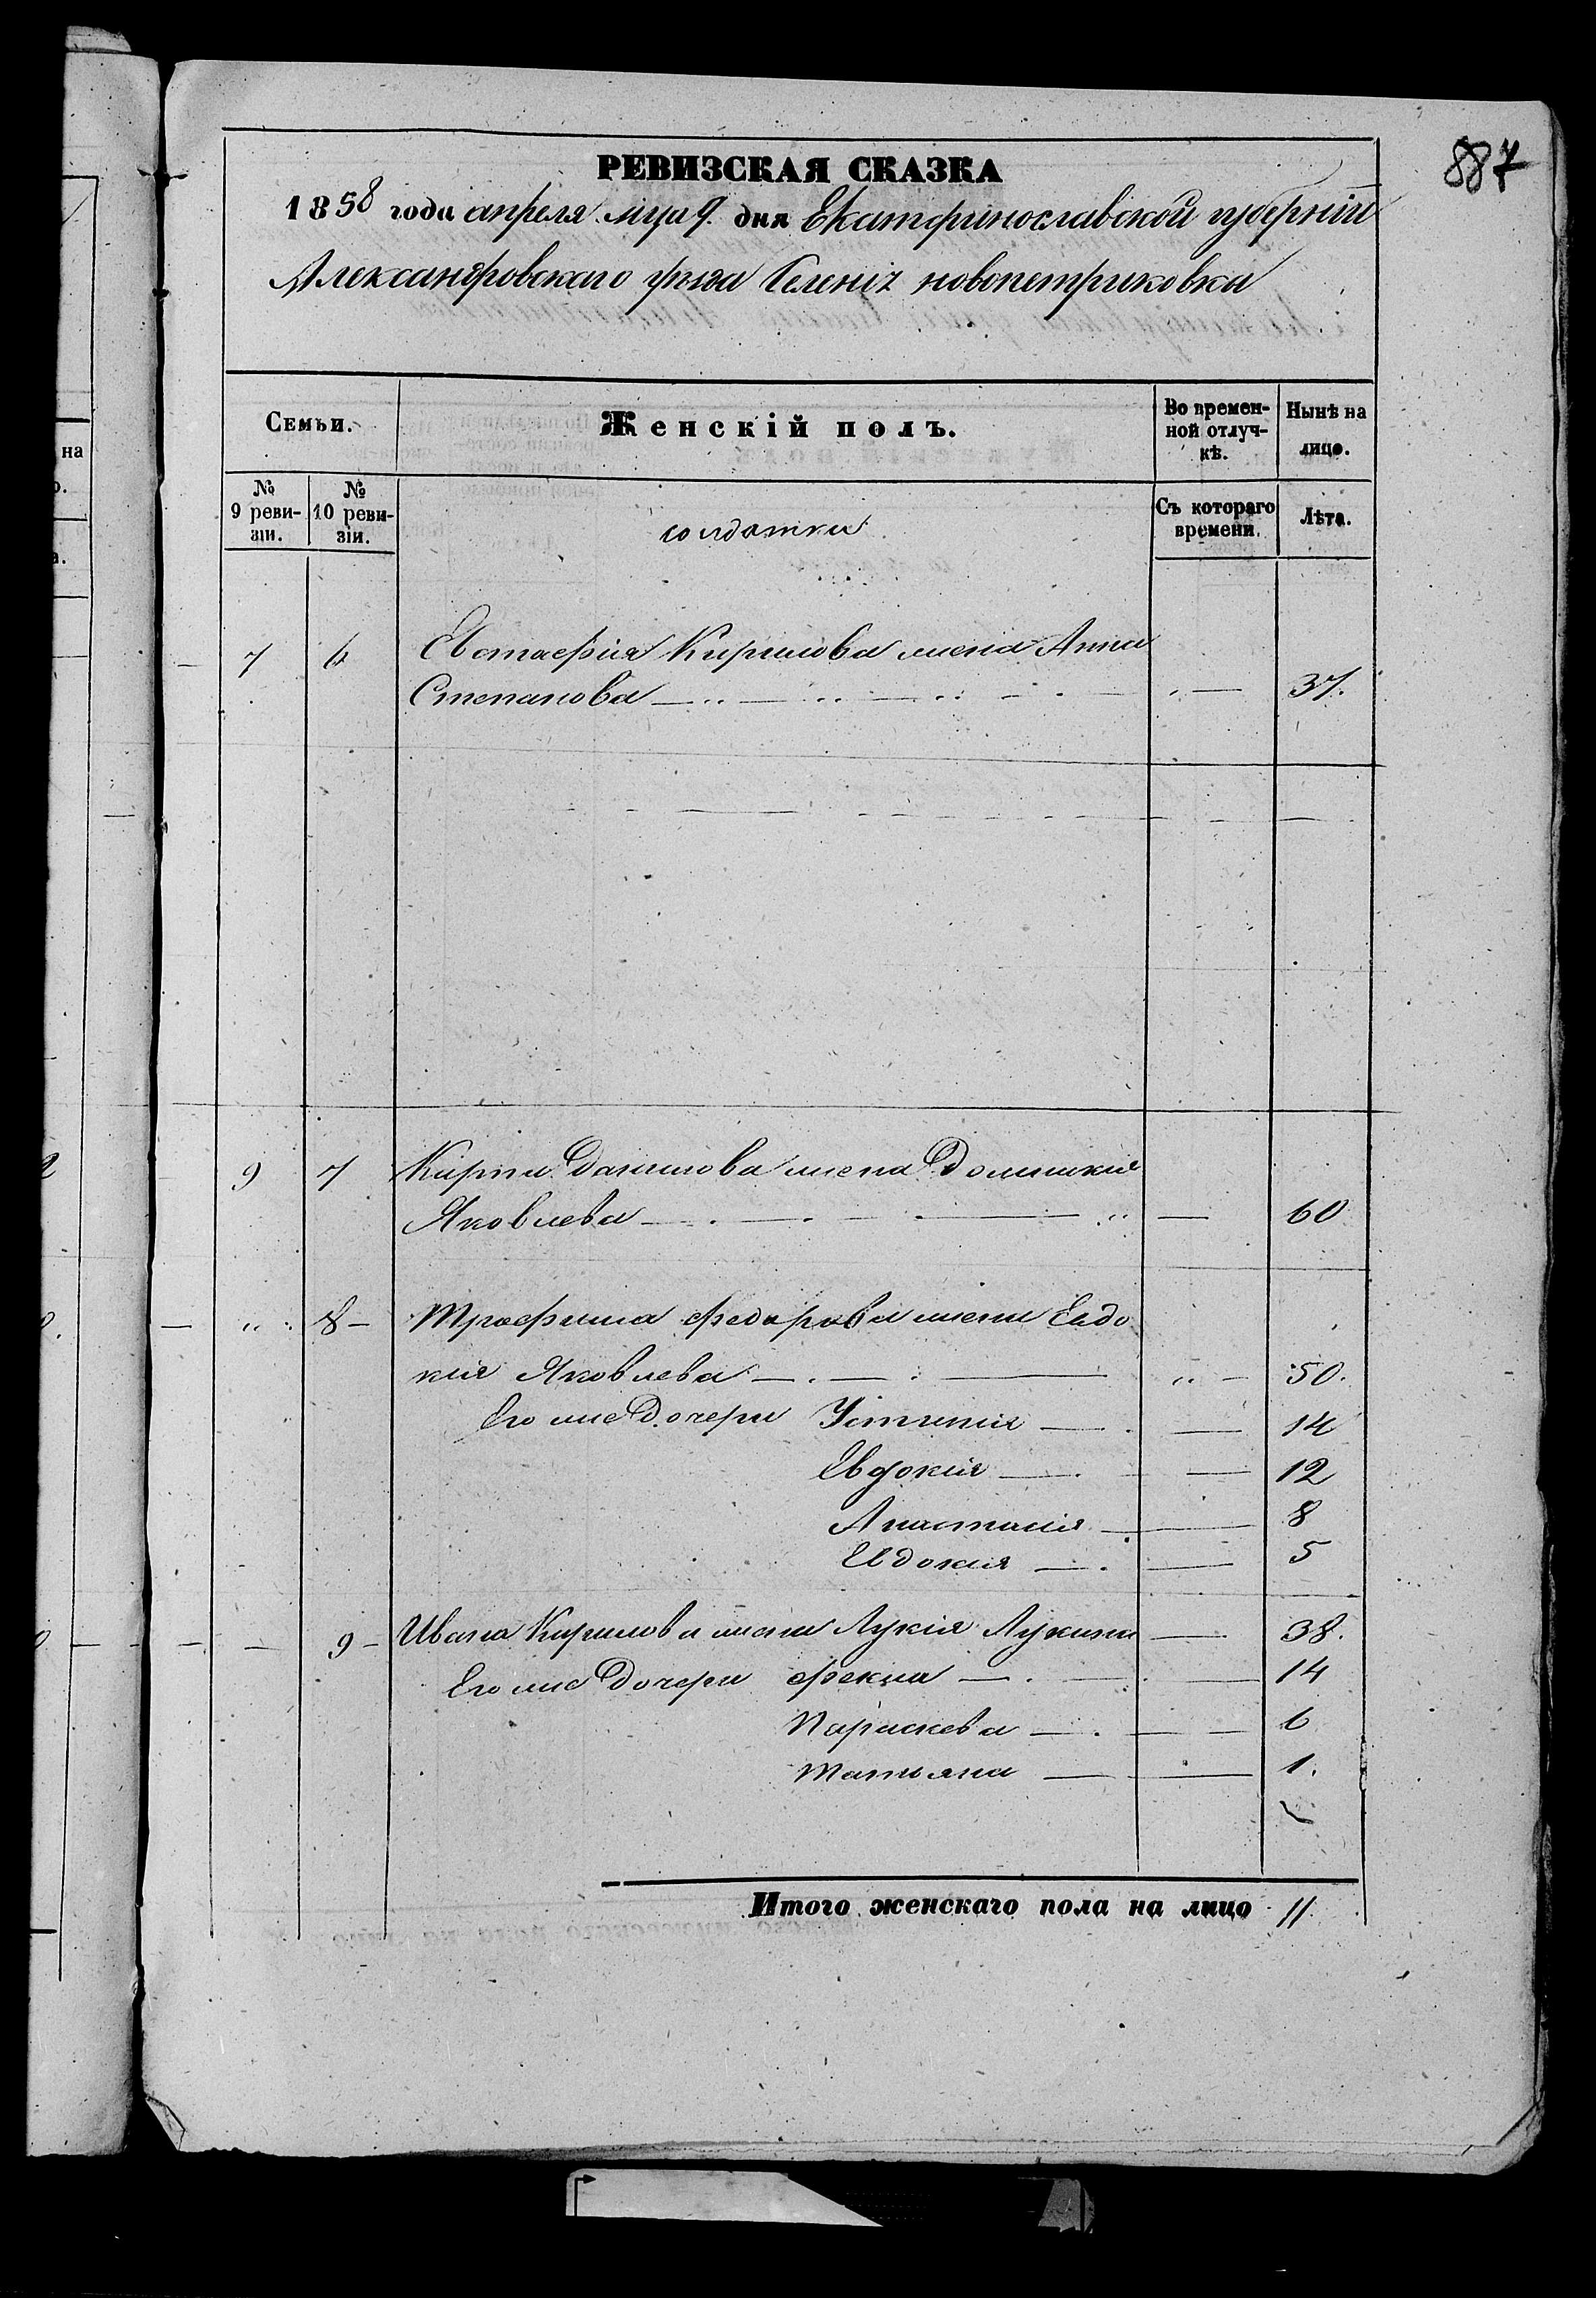 887
РЕВИЗСКАЯ СКАЗКА
1858 года апреля мца 9 дня Екатеринославской губернiи
Александровскаго уезда Селенiя новопетриковка
Семьи.
Женскiй полъ.
Во времен-
ной отлуч-
кѣ.
Нынѣ на
лицо.
№
9 реви-
зiи.
№
10 реви-
зiи.
солдатки
Съ котораго
времени.
Лѣта.
7 6 Евстафiя Кирилова жена Анна
Степанова 37.
9 7 Кирила Данилова жена Домникiя
Яковлева 60
" 8 Трофима Федорова жена Евдо
кiя Яковлева " 50.
Его же Дочери Устинiя 14
Евдокiя 12
Анастасiя 8
Евдокiя 5
9 Ивана Кирилова жена Лукiя Лукина 38.
Его же Дочери Фекла 14
Параскева 6
Татьяна 1.
Итого женскаго пола на лицо 11
на